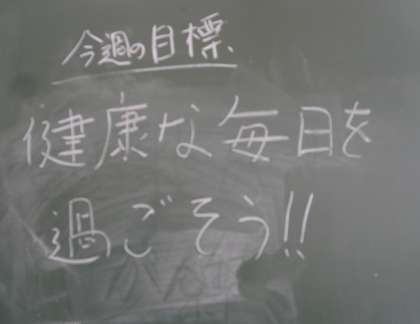 今週の目標
健康な毎日を
過ごそう!!